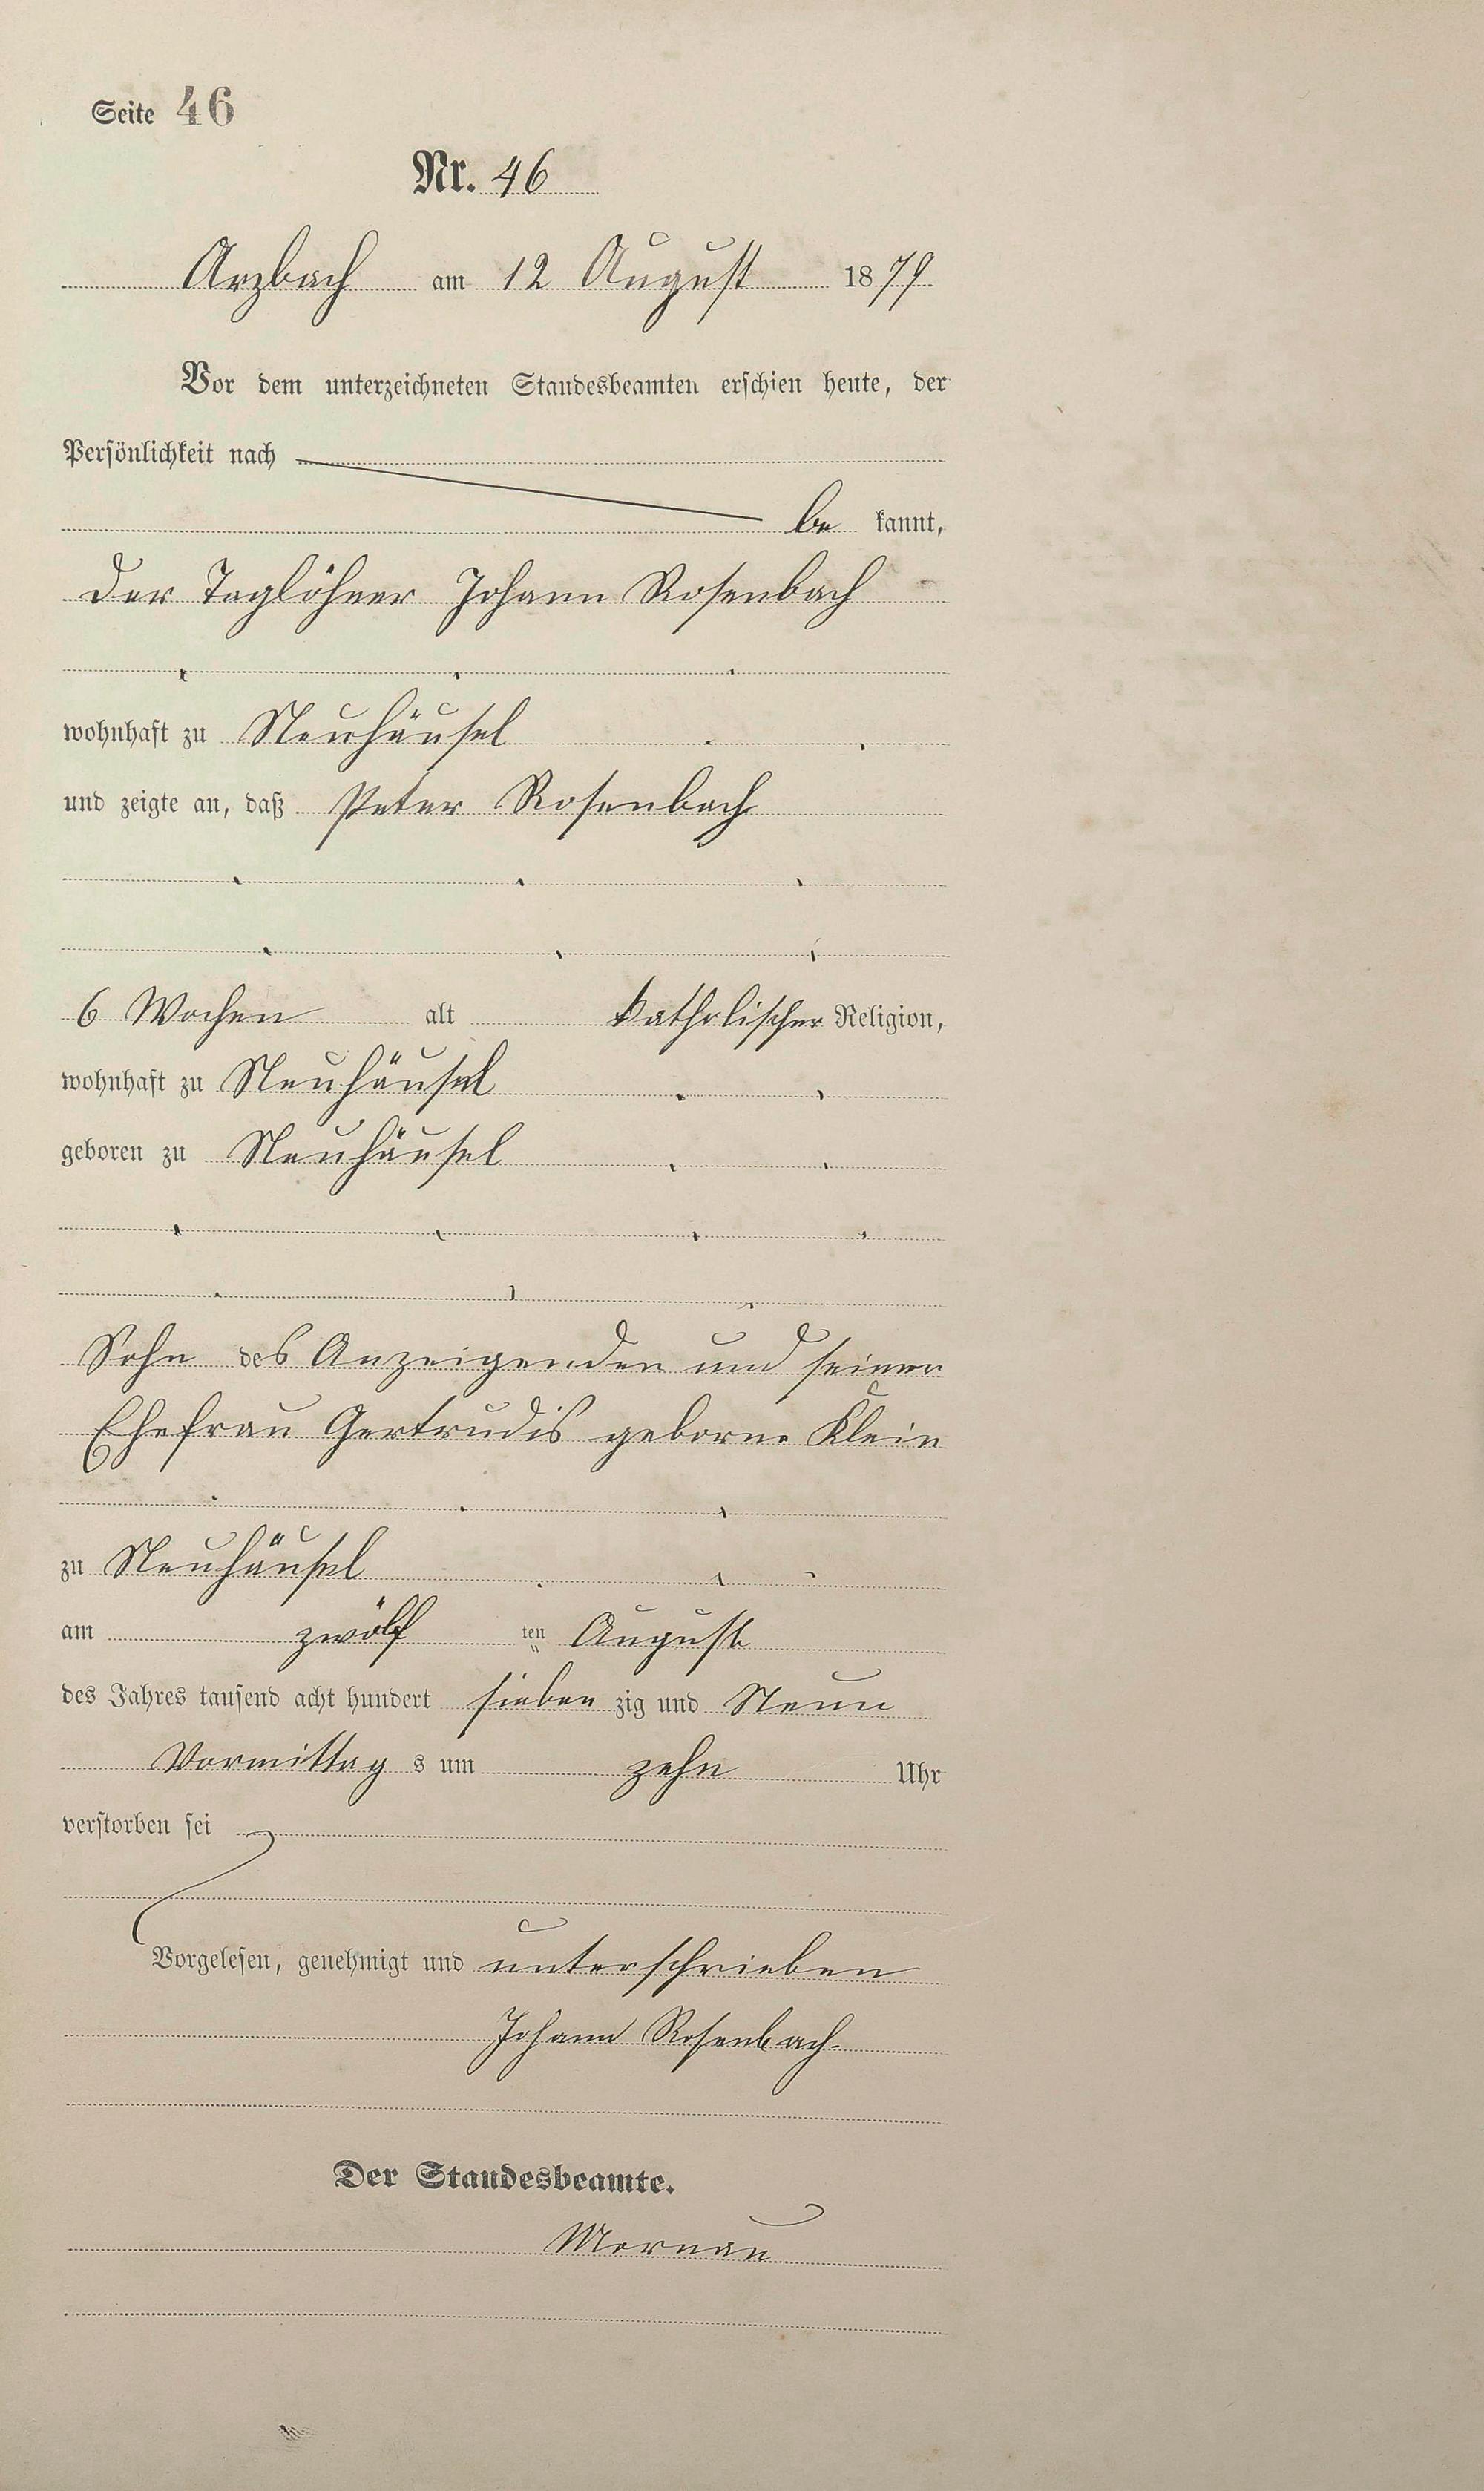 Seite 46
Nr. 46
Arzbach am 12 August 1879
Vor dem unterzeichneten Standesbeamten erschien heute, der
Persönlichkeit nach
be kannt,
der Taglöhner Johann Rosenbach
wohnhaft zu Neuhäusel
und zeigte an, daß Peter Rosenbach
6 Wochen alt katholischer Religion,
wohnhaft zu Neuhäusel
geboren zu Neuhäusel
Sohn des Anzeigenden und seiner
Ehefrau Gertrudis geborne Klein
zu Neuhäusel
am zwölf ten August
des Jahres tausend acht hundert sieben zig und Neun
Vormittag s um zehn Uhr
verstorben sei
Vorgelesen, genehmigt und unterschrieben
Johann Rosenbach
Der Standesbeamte.
Mornau